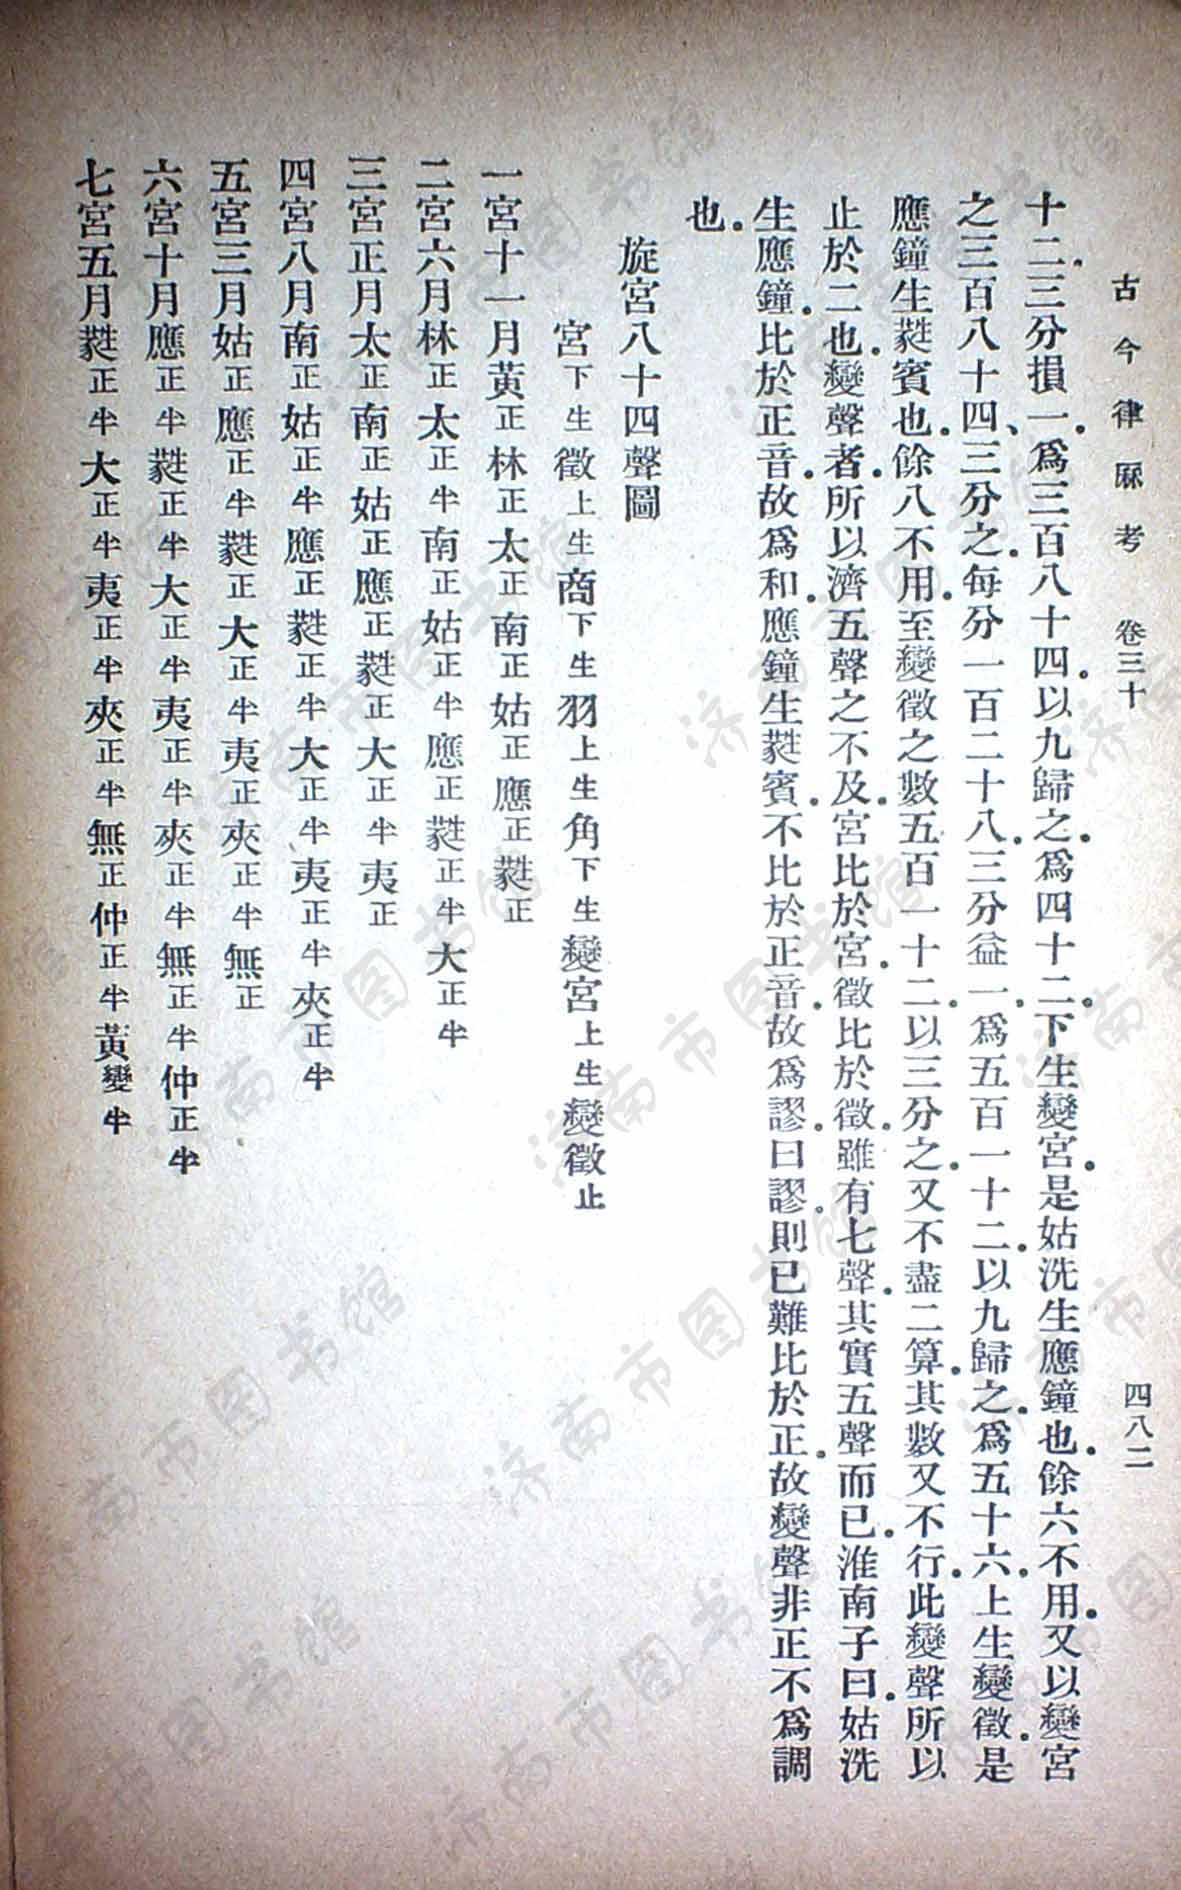 古今律厤考　卷三十　四八二
十二三分損一爲三百八十四以九歸之爲四十二下生變宮是姑洗生應鐘也餘六不用又以變宮
之三百八十四三分之每分一百二十八三分益一爲五百一十二以九歸之爲五十六上生變徵是
應鐘生蕤賓也餘八不用至變徵之數五百一十二以三分之又不盡二算其數又不行此變聲所以
止於二也變聲者所以濟五聲之不及宮比於宮徵比於徵雖有七聲其實五聲而已淮南子曰姑洗
生應鐘比於正音故爲和應鐘生蕤賓不比於正音故爲謬曰謬則已難比於正故變聲非正不爲調
也
旋宮八十四聲圖
宮下生徵上生商下生羽上生角下生變宮上生變徵止
一宮十一月黃正林正太正南正姑正應正蕤正
二宮六月林正太正半南正姑正半應正蕤正半大正半
三宮正月太正南正姑正應正蕤正大正半夷正
四宮八月南正姑正半應正蕤正半大正半夷正半夾正半
五宮三月姑正應正半蕤正大正半夷正夾正半無正
六宮十月應正半蕤正半大正半夷正半夾正半無正半仲正半
七宮五月蕤正半大正半夷正半夾正半無正仲正半黃變半
济南市图书馆